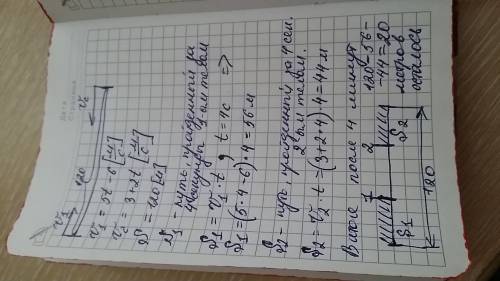 Дата
v₁ 120 v₂
v₁ = 5t - 6 [м/с]
v₂ = 3 + 2t [м/с]
S = 120 [м]
S₁ - путь, пройденный за
4 секунды 1-ым телом
S₁ = v₁ · t, t = 4c =>
S₁ = (5 · 4 - 6) · 4 = 56 м
S₂ - путь пройденный за 4 сек.
2ым телом.
S₂ = v₂ · t = (3 + 2 · 4) · 4 = 44 м
В итоге после 4 минут
120 - 56 -
- 44 = 20
метров
осталось
1 2
S1 S2
120